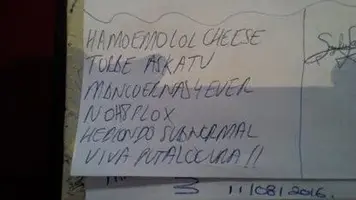 HAMOEMOLOL CHEESE
TORBE ASKATU
MANCUERNAS 4 EVER
NOH8 PLOX
HEDIONDO SUBNORMAL
VIVA PUTALOCURA !!
3 11/08/2016.